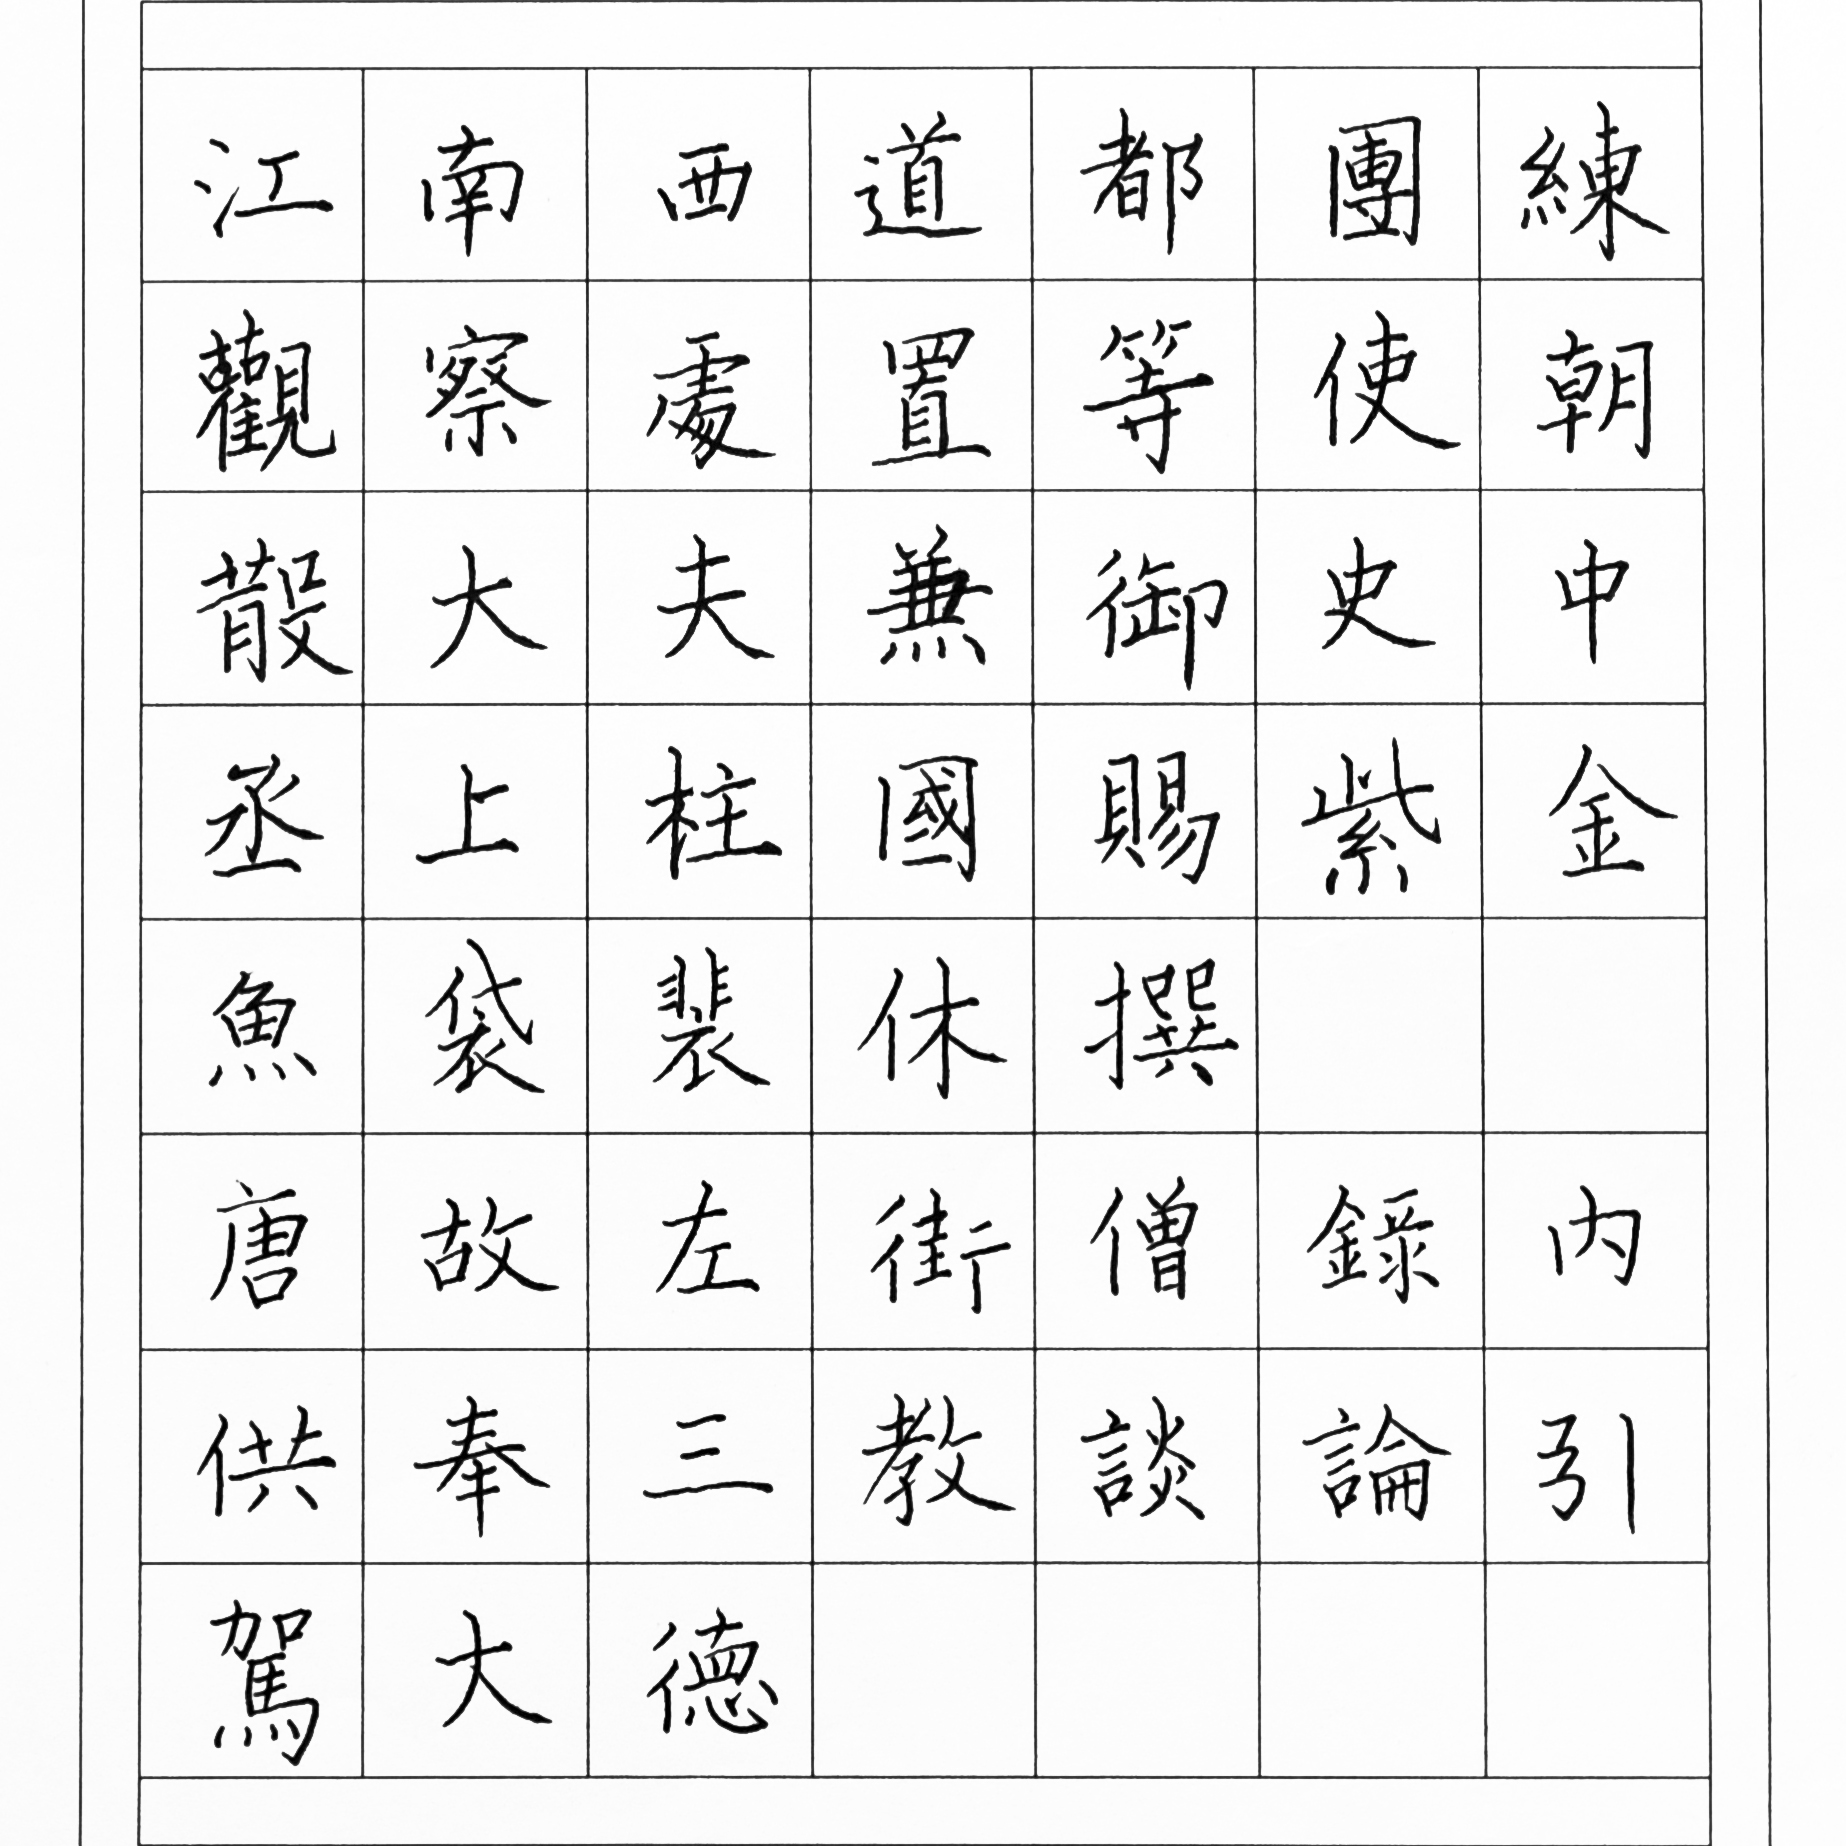 江南西道都團練
觀察處置等使朝
散大夫兼御史中
丞上柱國賜紫金
魚袋裴休撰
唐故左街僧録内
供奉三教談論引
駕大德